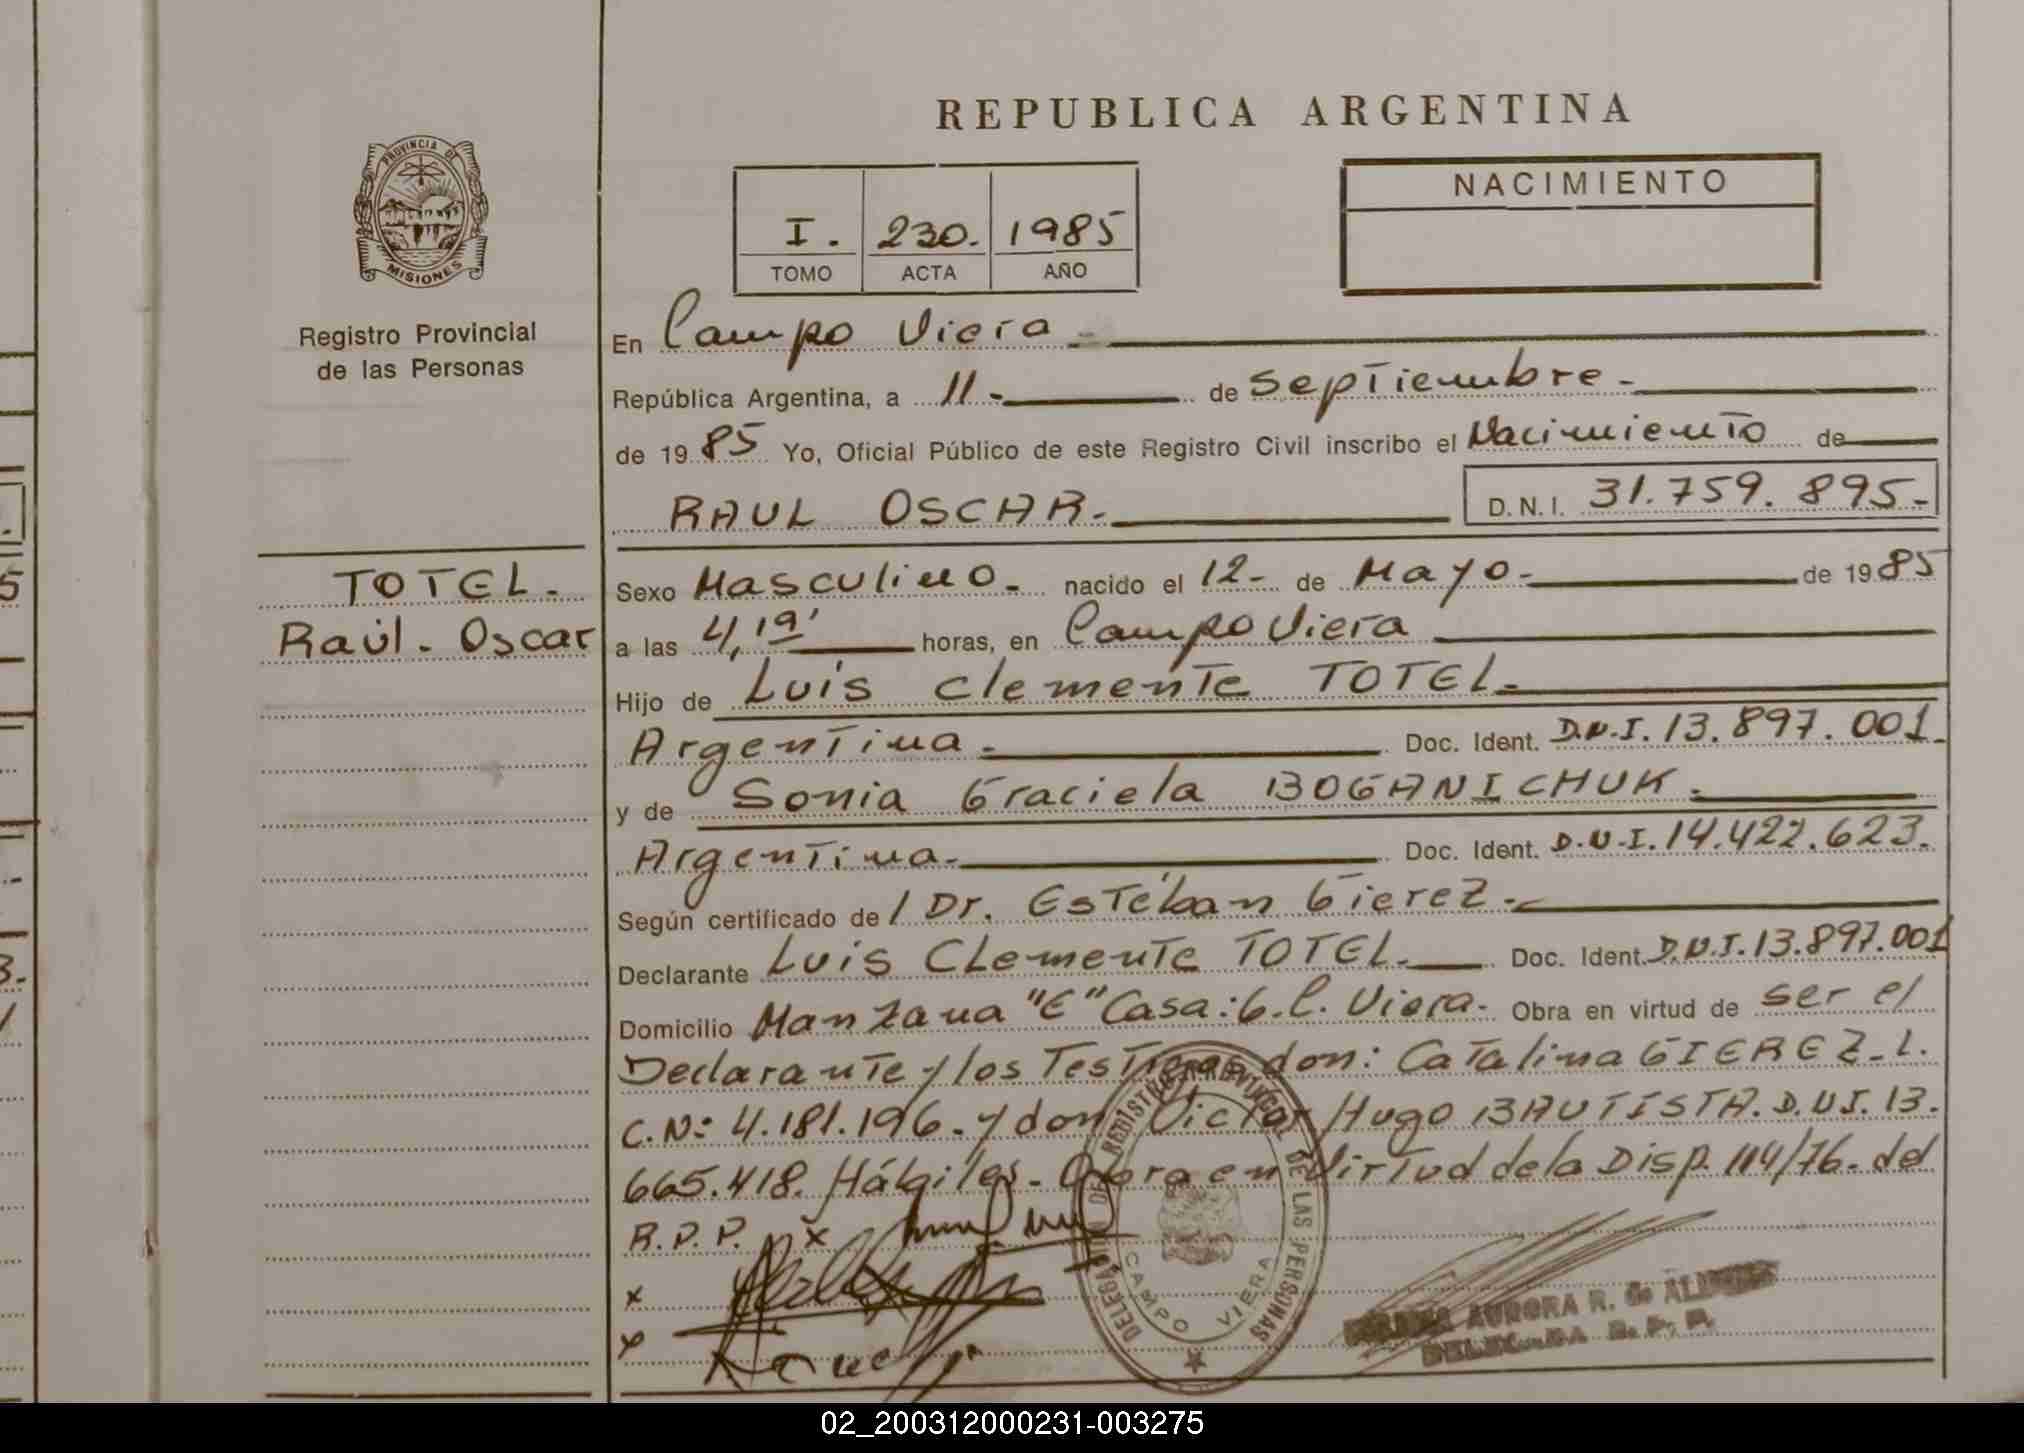 REPUBLICA ARGENTINA
PROVINCIA DE
MISIONES
Registro Provincial
de las Personas
I. 230. 1985
TOMO ACTA AÑO
NACIMIENTO
En Campo Viera
República Argentina, a 11 - de Septiembre -
de 19 85 Yo, Oficial Público de este Registro Civil inscribo el Nacimiento de
RAUL OSCAR. D.N.I. 31.759.895-
TOTEL.
Raúl. Oscar
Sexo Masculino - nacido el 12- de Mayo - de 19 85
a las 4,19' horas, en Campo Viera
Hijo de Luis Clemente TOTEL-
Argentina - Doc. Ident. D.N.I. 13.897.001-
y de Sonia Graciela BOGANICHUK.
Argentina - Doc. Ident. D.N.I. 14.422.623.
Según certificado de / Dr. Estéban Gierez -
Declarante Luis Clemente TOTEL. Doc. Ident. D.N.I. 13.897.001
Domicilio Manzana "E" Casa: 6. C. Viera - Obra en virtud de ser el
Declarante y los Testigos don: Catalina GIEREZ - L.
C.Nº 4.181.196. y don Victor Hugo BAUTISTA. D.N.I. 13.
665.418. Hábiles - Obra en Virtud de la Disp. 114/76. del
R.P.P. x
x
x
DELEGACION DE REGISTRO PROVINCIAL DE LAS PERSONAS
CAMPO VIERA
AURORA R. de
DELEGADA R. P. P.
02_200312000231-003275